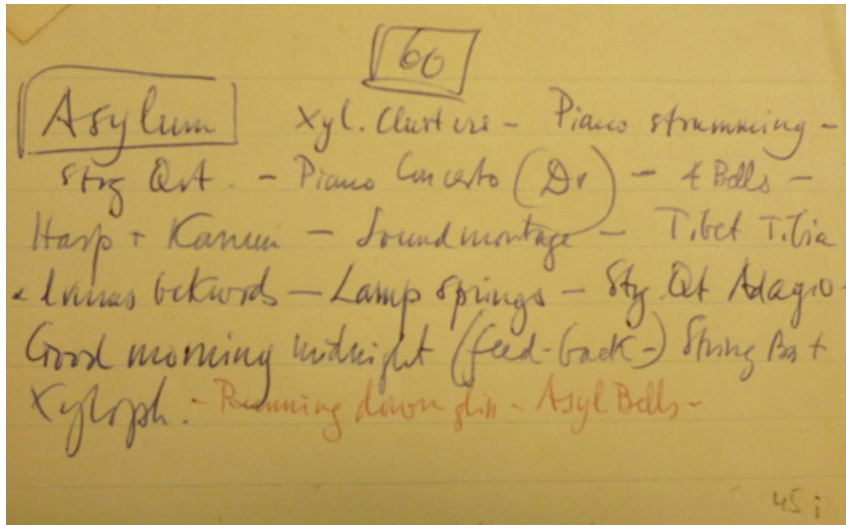 60
Asylum Xyl. Clusters - Piano strumming -
Strg Qrt. - Piano Concerto (Dr) - & Bells -
Harp + Kanun - Soundmontage - Tibet Tibia
Lamas bckwords - Lamp springs - Stg. Qt Adagio -
Good morning midnight (feed-back-) String Bs +
Xyloph. - Running down glis - Asyl Bells -
45